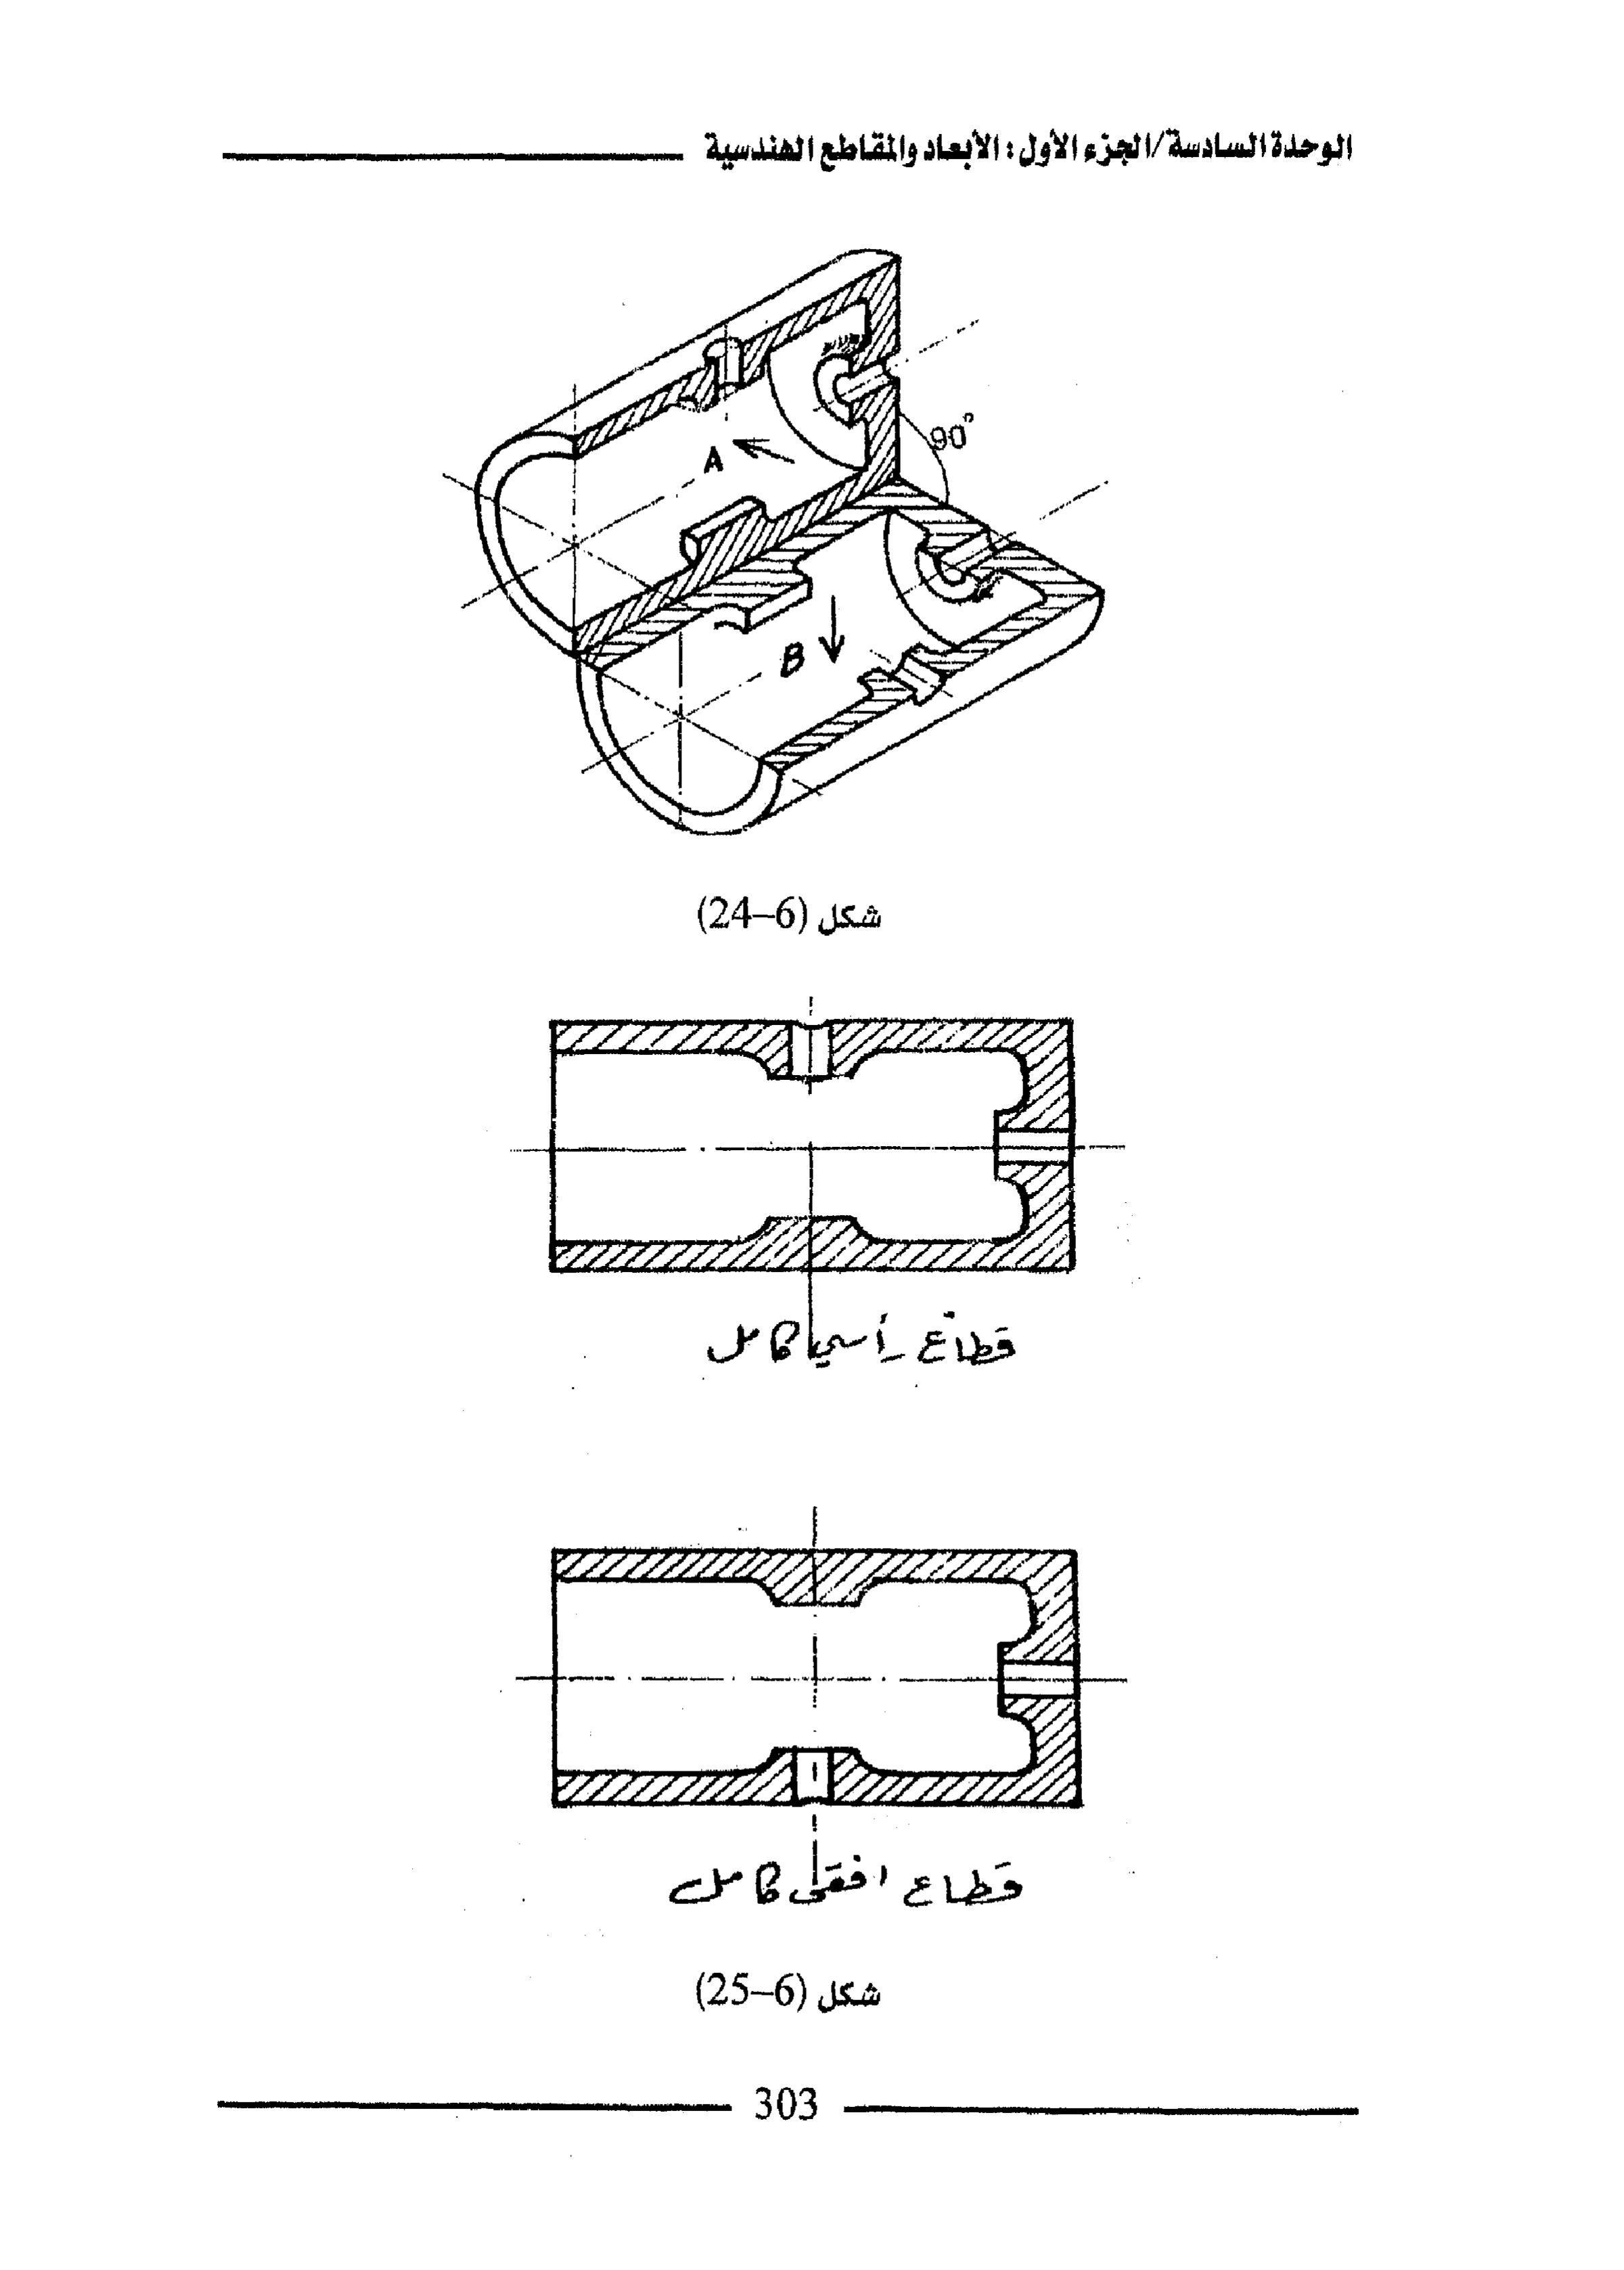 الوحدة السادسة/الجزء الأول : الأبعاد والمقاطع الهندسية
90°
A
B
شكل (6–24)
قطاع رأسي كامل
قطاع افقى كامل
شكل (6–25)
303